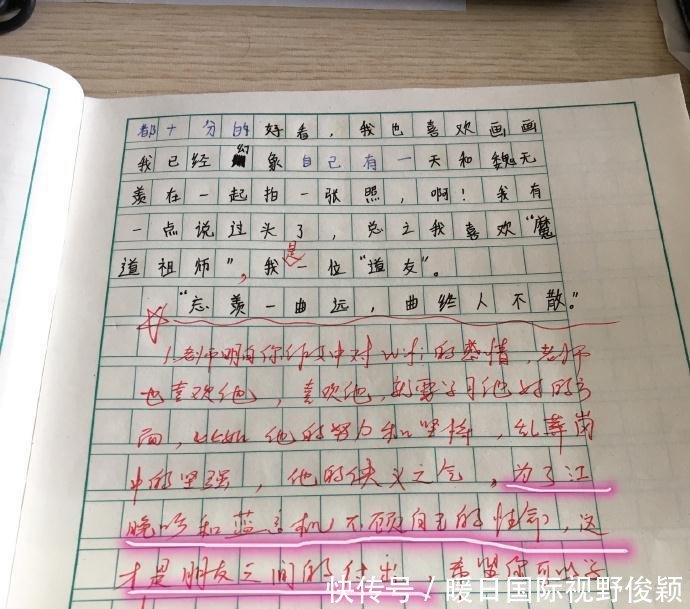 都十分的好看，我也喜欢画画
我已经幻象自己有一天和魏无
羡在一起拍一张照，啊！我有
一点说过头了，总之我喜欢“魔
道祖师”，我是一位“道友”。
“忘羡一曲远，曲终人不散。”
1.老师明白你作文中对wifi的感情，老师
也喜欢他，喜欢他，就要学习他好的方
面，比如他的努力和坚持，乱葬岗
中的坚强，他的侠义之气，为了江
晚吟和蓝忘机，不顾自己的性命，这
才是朋友之间的付出，希望你可以学
快传号／暖日国际视野俊颖